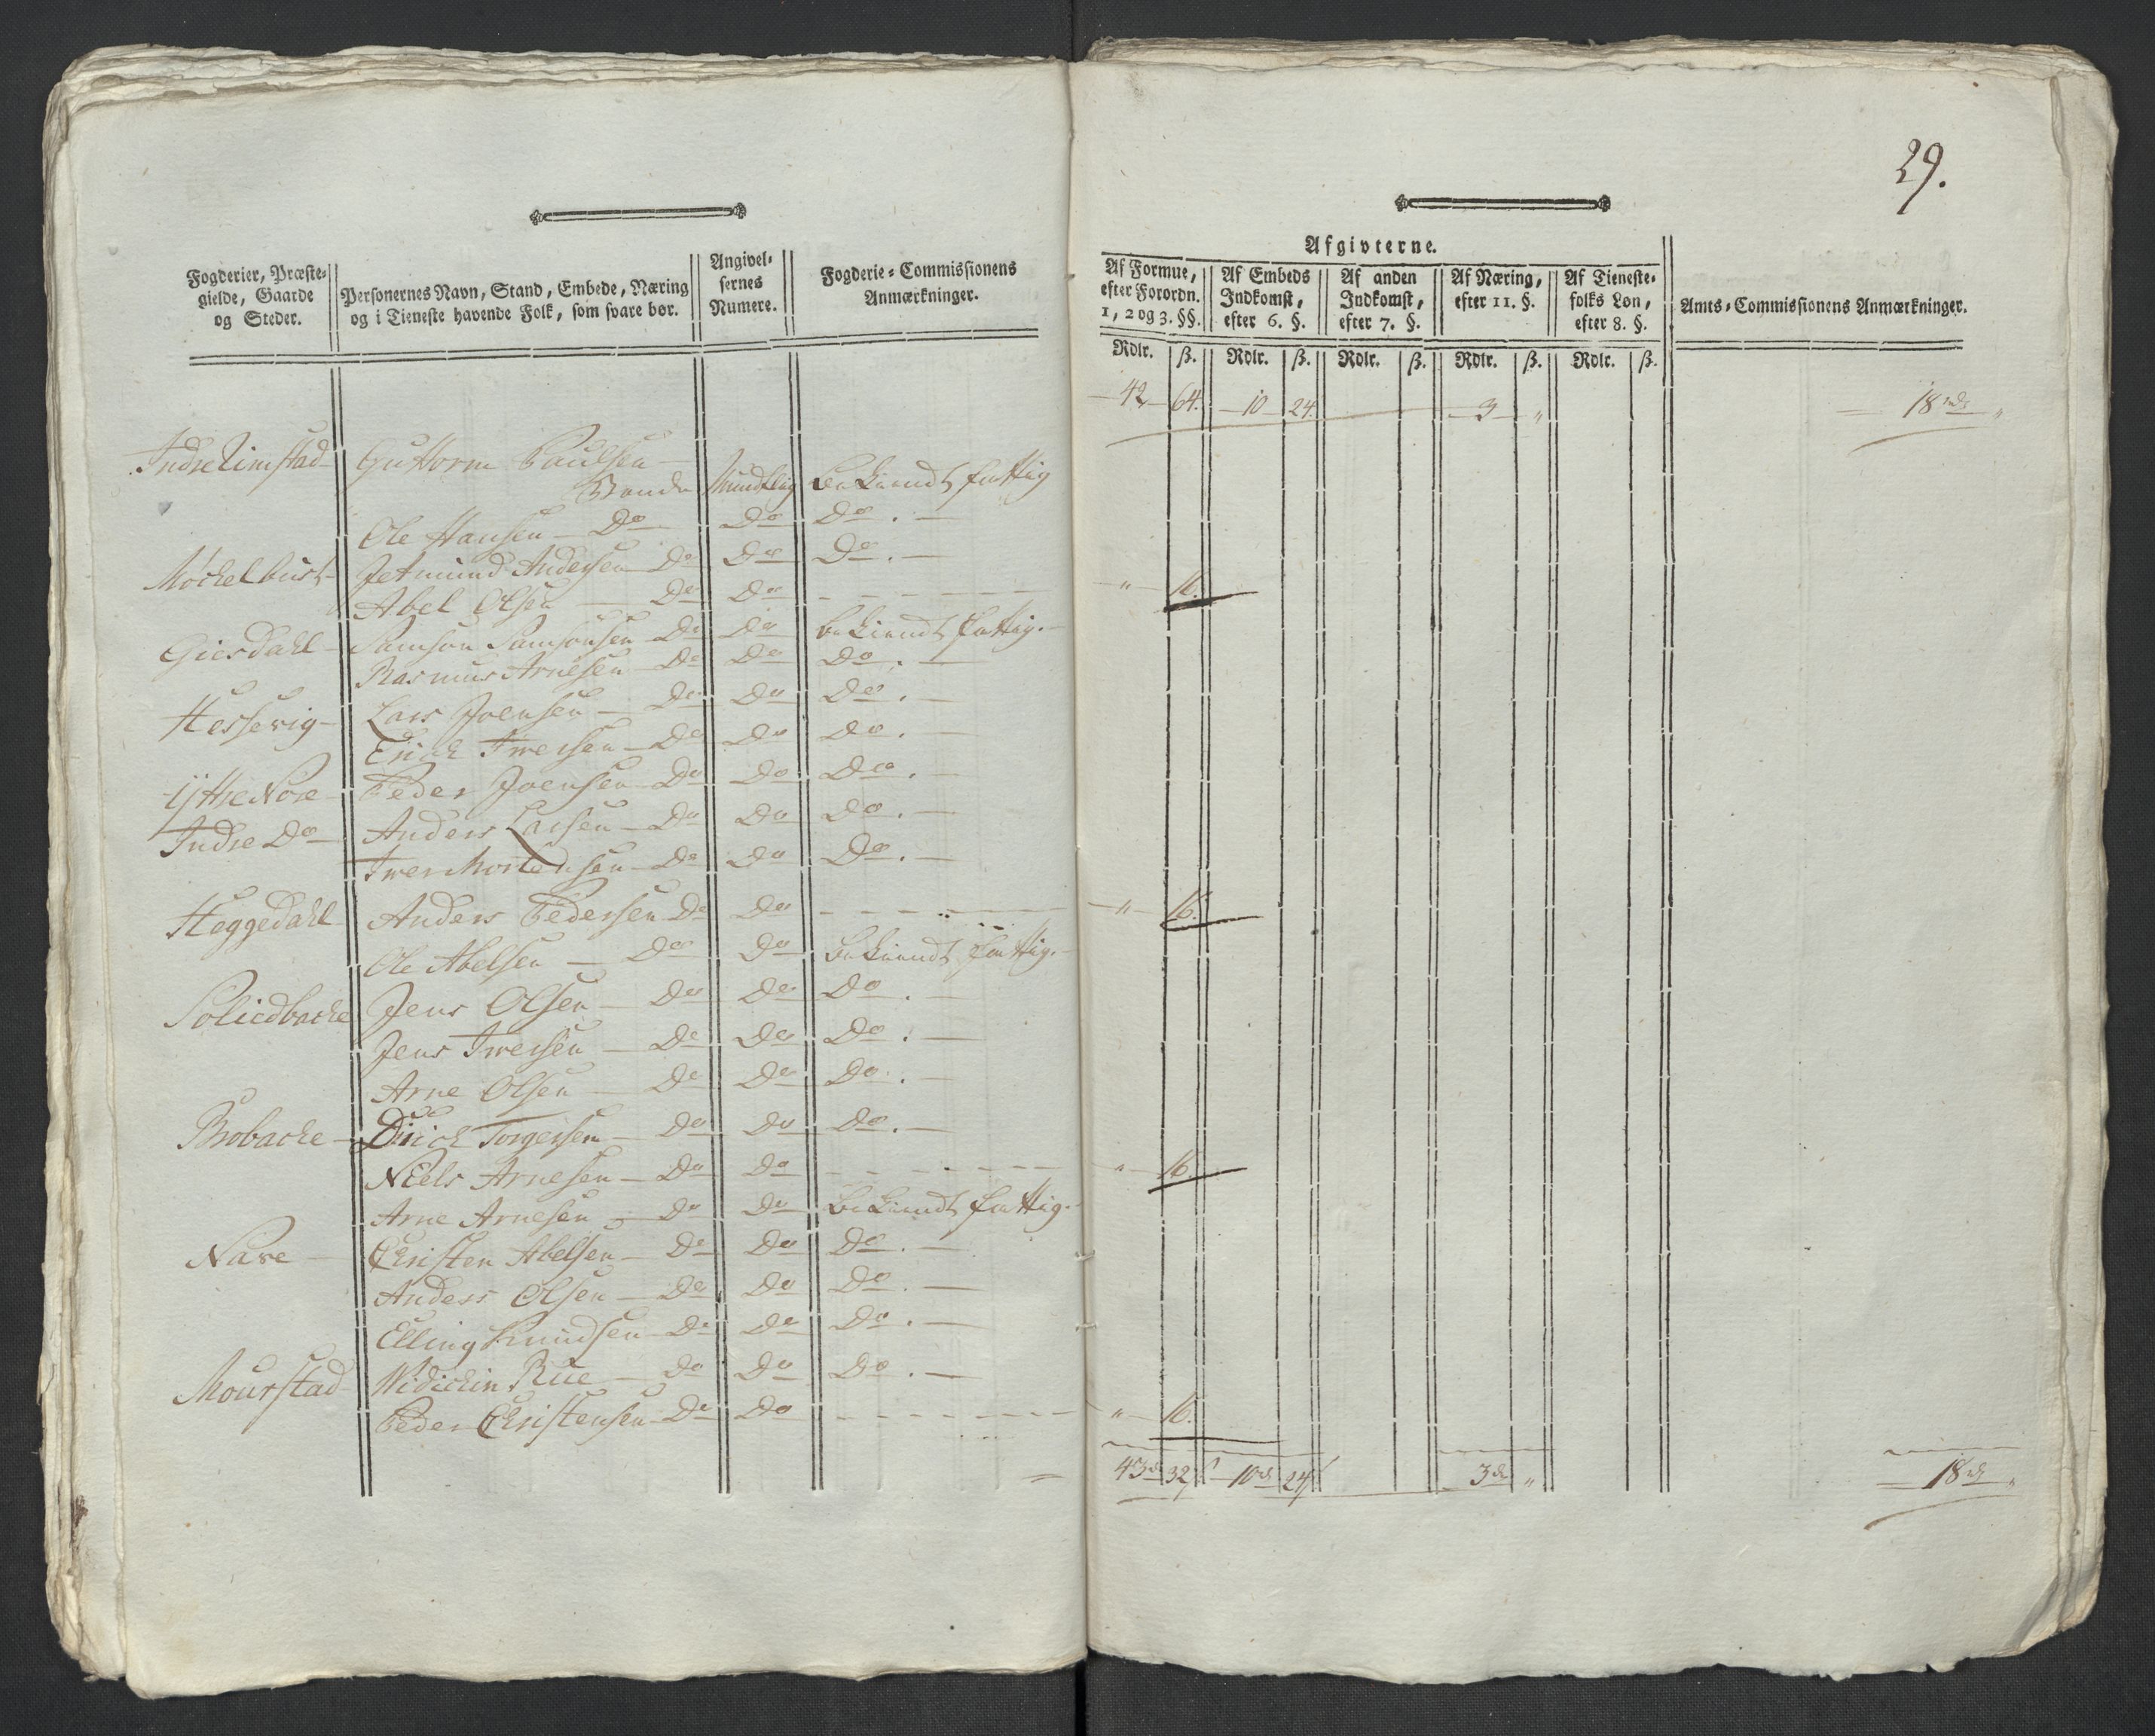 29.
Fogderier, Præste-
gielde, Gaarde
og Steder.
Personernes Navn, Stand, Embede, Næring
og i Tieneste havende Folk, som svare bør.
Angivel-
sernes
Numere.
Fogderie-Commissionens
Anmærkninger.
Afgivterne.
Af Formue,
efter Forordn.
1, 2 og 3. §§.
Af Embeds
Indkomst,
efter 6. §.
Af anden
Indkomst,
efter 7. §.
Af Næring,
efter 11. §.
Af Tieneste-
folks Løn,
efter 8. §.
Amts-Commissionens Anmærkninger.
Rdlr. ß. Rdlr. ß. Rdlr. ß. Rdlr. ß. Rdlr. ß.
42 64. 10 24. 3 " 18 rdr "
Indre Rimstad Guttorm Paulsen
Bonde Mundtlig bekiendt fattig
Ole Hansen Do Do Do.
Møchelbust Jetmund Andersen Do Do Do.
Abel Olsen Do Do " 16.
Giersdahl Samson Samsonsen Do Do bekiendt fattig.
Rasmus Arnesen Do Do Do.
Hessevig Lars Joensen Do Do Do.
Erich Iwersen Do Do Do.
Ÿttre Nore Peder Joensen Do Do Do.
Indre Do Anders Larsen Do Do Do.
Iwer Mortensen Do Do Do.
Heggedahl Anders Pedersen Do Do " 16.
Ole Abelsen Do Do bekiendt fattig.
Soliedbache Jens Olsen Do Do Do.
Jens Iwersen Do Do Do.
Arne Olsen Do Do Do.
Brobache Dirich Torgersen Do Do Do.
Niels Arnesen Do Do " 16.
Arne Arnesen Do Do bekiendt fattig.
Nave Christen Abelsen Do Do Do.
Anders Olsen Do Do Do.
Elling Knudsen Do Do Do.
Mourstad Widichin Rue Do Do Do.
Peder Christensen Do Do " 16.
43 rd 32 10 rd 24 3 rd " 18 rd "